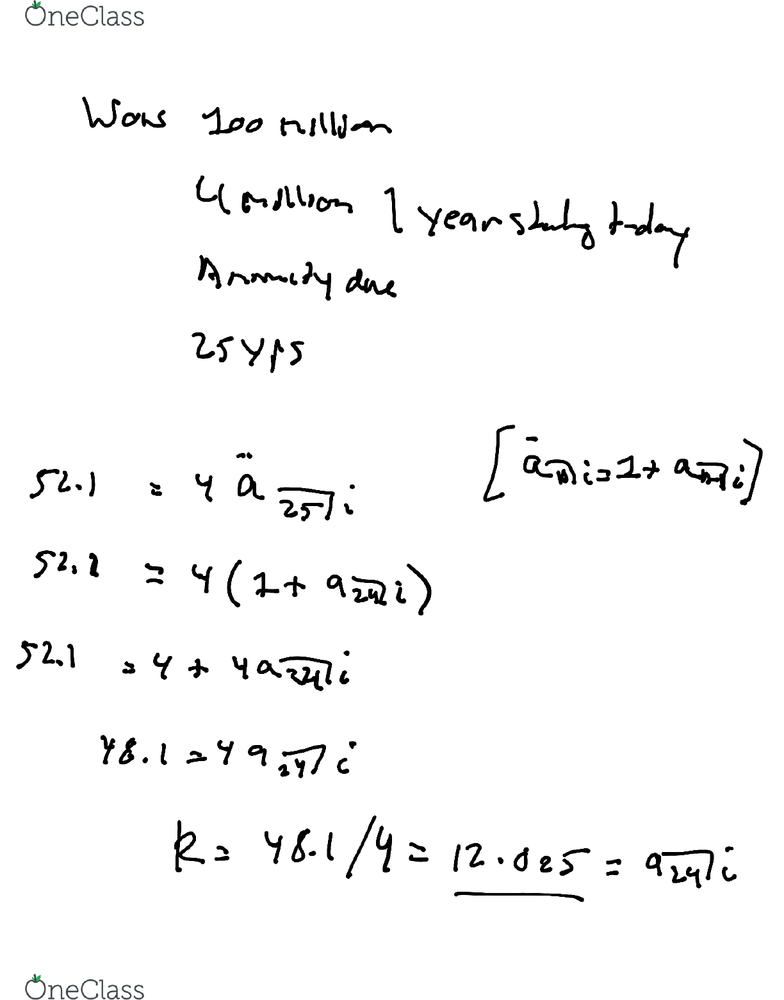 OneClass
Wons 100 million
4 million 1 year starting today
Annuity due
25 yrs
52.1 = 4 ä 25 i
[ä n i = 1 + a n-1 i]
52.1 = 4 (1 + a 24 i)
52.1 = 4 + 4 a 24 i
48.1 = 4 a 24 i
R = 48.1/4 = 12.025 = a 24 i
OneClass